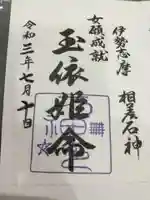 伊勢志摩　相差石神
女願成就
玉依姫命
令和三年七月十日